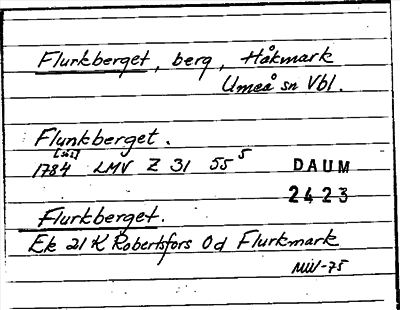 Flurkberget, berg, Håkmark
Umeå sn Vbl.
Flunkberget.
[sic]
1784 LMV Z 31 55⁵ DAUM
2423
Flurkberget.
Ek 21 K Robertsfors Od Flurkmark
MW-75